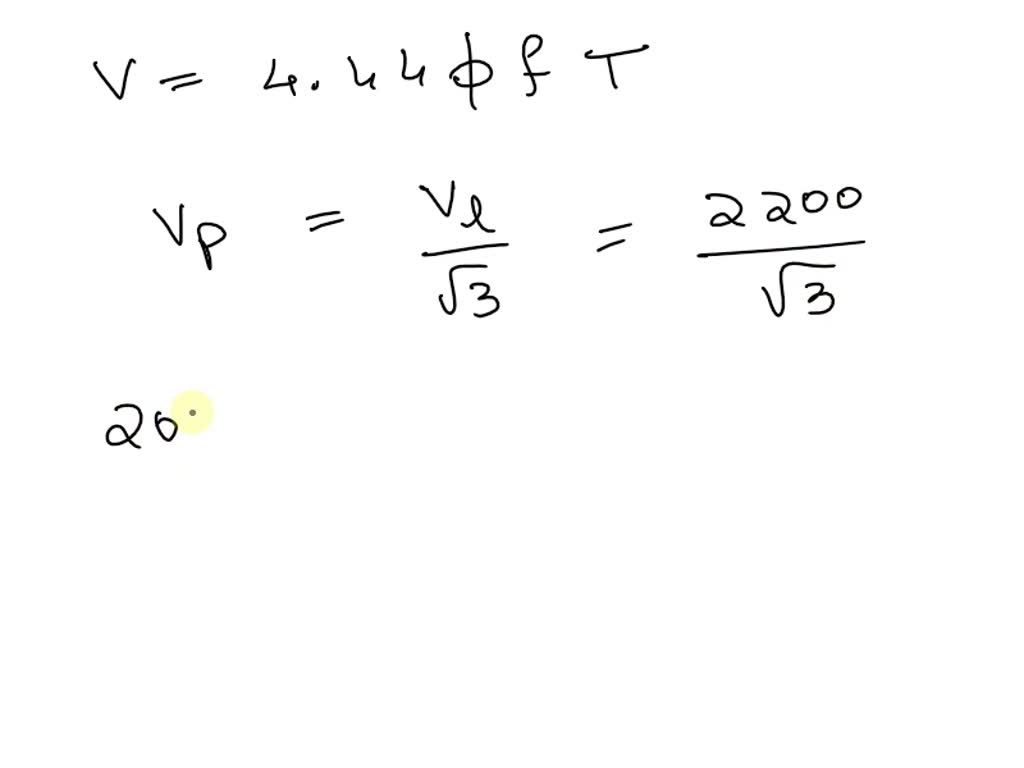 V = 4.44 ϕ f T
Vp = Vl/√3 = 2200/√3
20